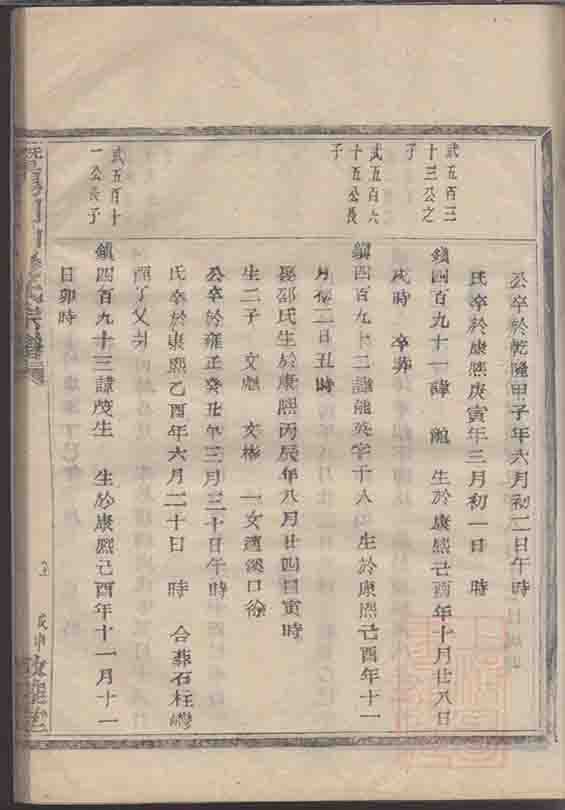 公卒於乾隆甲子年六月初二日午時
氏卒於康熙庚寅年三月初一日 時
武五百三
十三公之
子
鎮四百九十一諱 生於康熙己酉年十月廿八日
戌時 卒葬
武五百六
十五公長
子
鎮四百九十二諱能英字千人 生於康熙己酉年十一
月初二日丑時
邵氏生於康熙丙辰年八月廿四日寅時
生二子 文彪 文彬 一女適溪口徐
公卒於雍正癸丑年三月二十日午時
氏卒於康熙乙酉年六月二十日 時 合葬石柱
武五百十
一公長子
鎮四百九十三諱茂生 生於康熙己酉年十一月十一
日卯時
氏宗譜